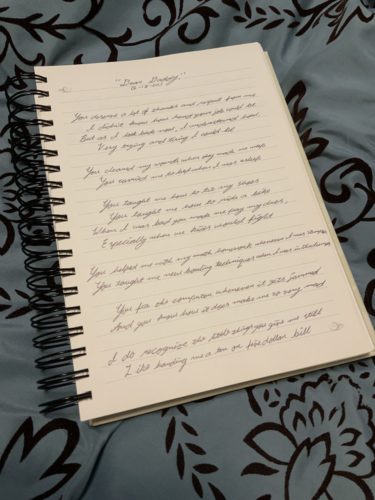 "Dear Daddy,"
You deserve a lot of thanks and respect from me
I didn't know how hard your job could be
But as I look back now, I understand how,
Very trying and tiring it could be
You cleaned my wounds when they made me weep
You carried me to bed when I was asleep
You taught me how to tie my shoes
You taught me how to ride a bike
When I was bad you made me pay my dues,
Especially when we kids would fight
You helped me with my math homework whenever it was
You taught me new bowling techniques when I was
You fix the computer whenever it gets jammed
And you know how it does make me so very mad
I do recognize the little things you give me still
Like handing me a ten or five dollar bill